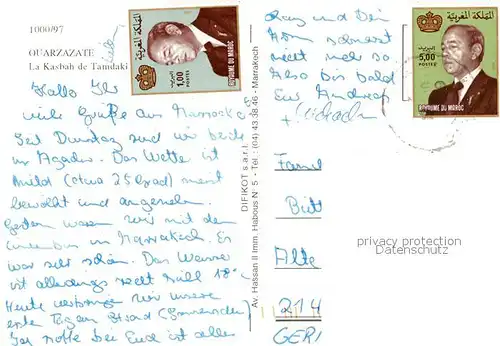 1000/97
OUARZAZATE
La Kasbah de Tamdakt
Hallo Ihr
viele Grüße aus Marrocko
Seit Dienstag sind wir beide
in Agadir. Das Wetter ist
mild (etwa 25 Grad) meist
bewölkt und angenehm.
Gestern waren wir mit dem
in Marrakech. Es
war sehr schön. Das Wasser
ist allerdings recht kühl 18°
Heute verbringen wir unsere
ersten Tag am Strand
Ich hoffe bei Euch ist alles
المملكة المغربية
البريد
1,00
POSTES
ROYAUME DU MAROC
DIFIKOT s.a.r.l.
Av. Hassan II Imm. Habous N° 5 - Tél.: (04) 43.38.46 - Marrakech
und Dein
Arm schmerzt
nicht mehr so
Also bis bald
Eur Andreas
+
المملكة المغربية
البريد
5,00
POSTES
ROYAUME DU MAROC
Fam
Bütt
Alte
214
GER
privacy protection
Datenschutz